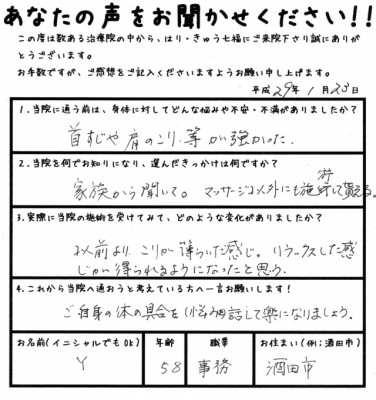 あなたの声をお聞かせください!!
この度は数ある治療院の中から、はり・きゅう七福にご来院下さり誠にありが
とうございます。
お手数ですが、ご感想をご記入くださいますようお願い申し上げます。
平成 29年 1月 23日
1.当院に通う前は、身体に対してどんな悩みや不安・不満がありましたか?
首すじや肩のこり等が強かった.
2.当院を何でお知りになり、選んだきっかけは何ですか?
家族から聞いて。マッサージ以外にも施術して貰える。
3.実際に当院の施術を受けてみて、どのような変化がありましたか?
以前より、こりが薄らいだ感じ。リラックスした感
じが得られるようになったと思う.
4.これから当院へ通おうと考えている方へ一言お願いします!
ご自身の体の具合を 相談して楽になりましょう.
お名前(イニシャルでもOK) 年齢 職業 お住まい(例;酒田市)
Y 58 事務 酒田市